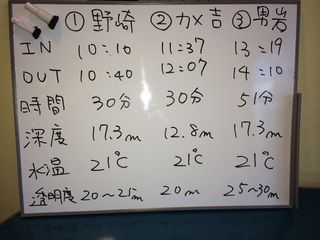 ① 野崎 ② カメ吉 ③ 男岩
IN 10:10 11:37 13:19
OUT 10:40 12:07 14:10
時間 30分 30分 51分
深度 17.3m 12.8m 17.3m
水温 21℃ 21℃ 21℃
透明度 20～25m 20m 25～30m